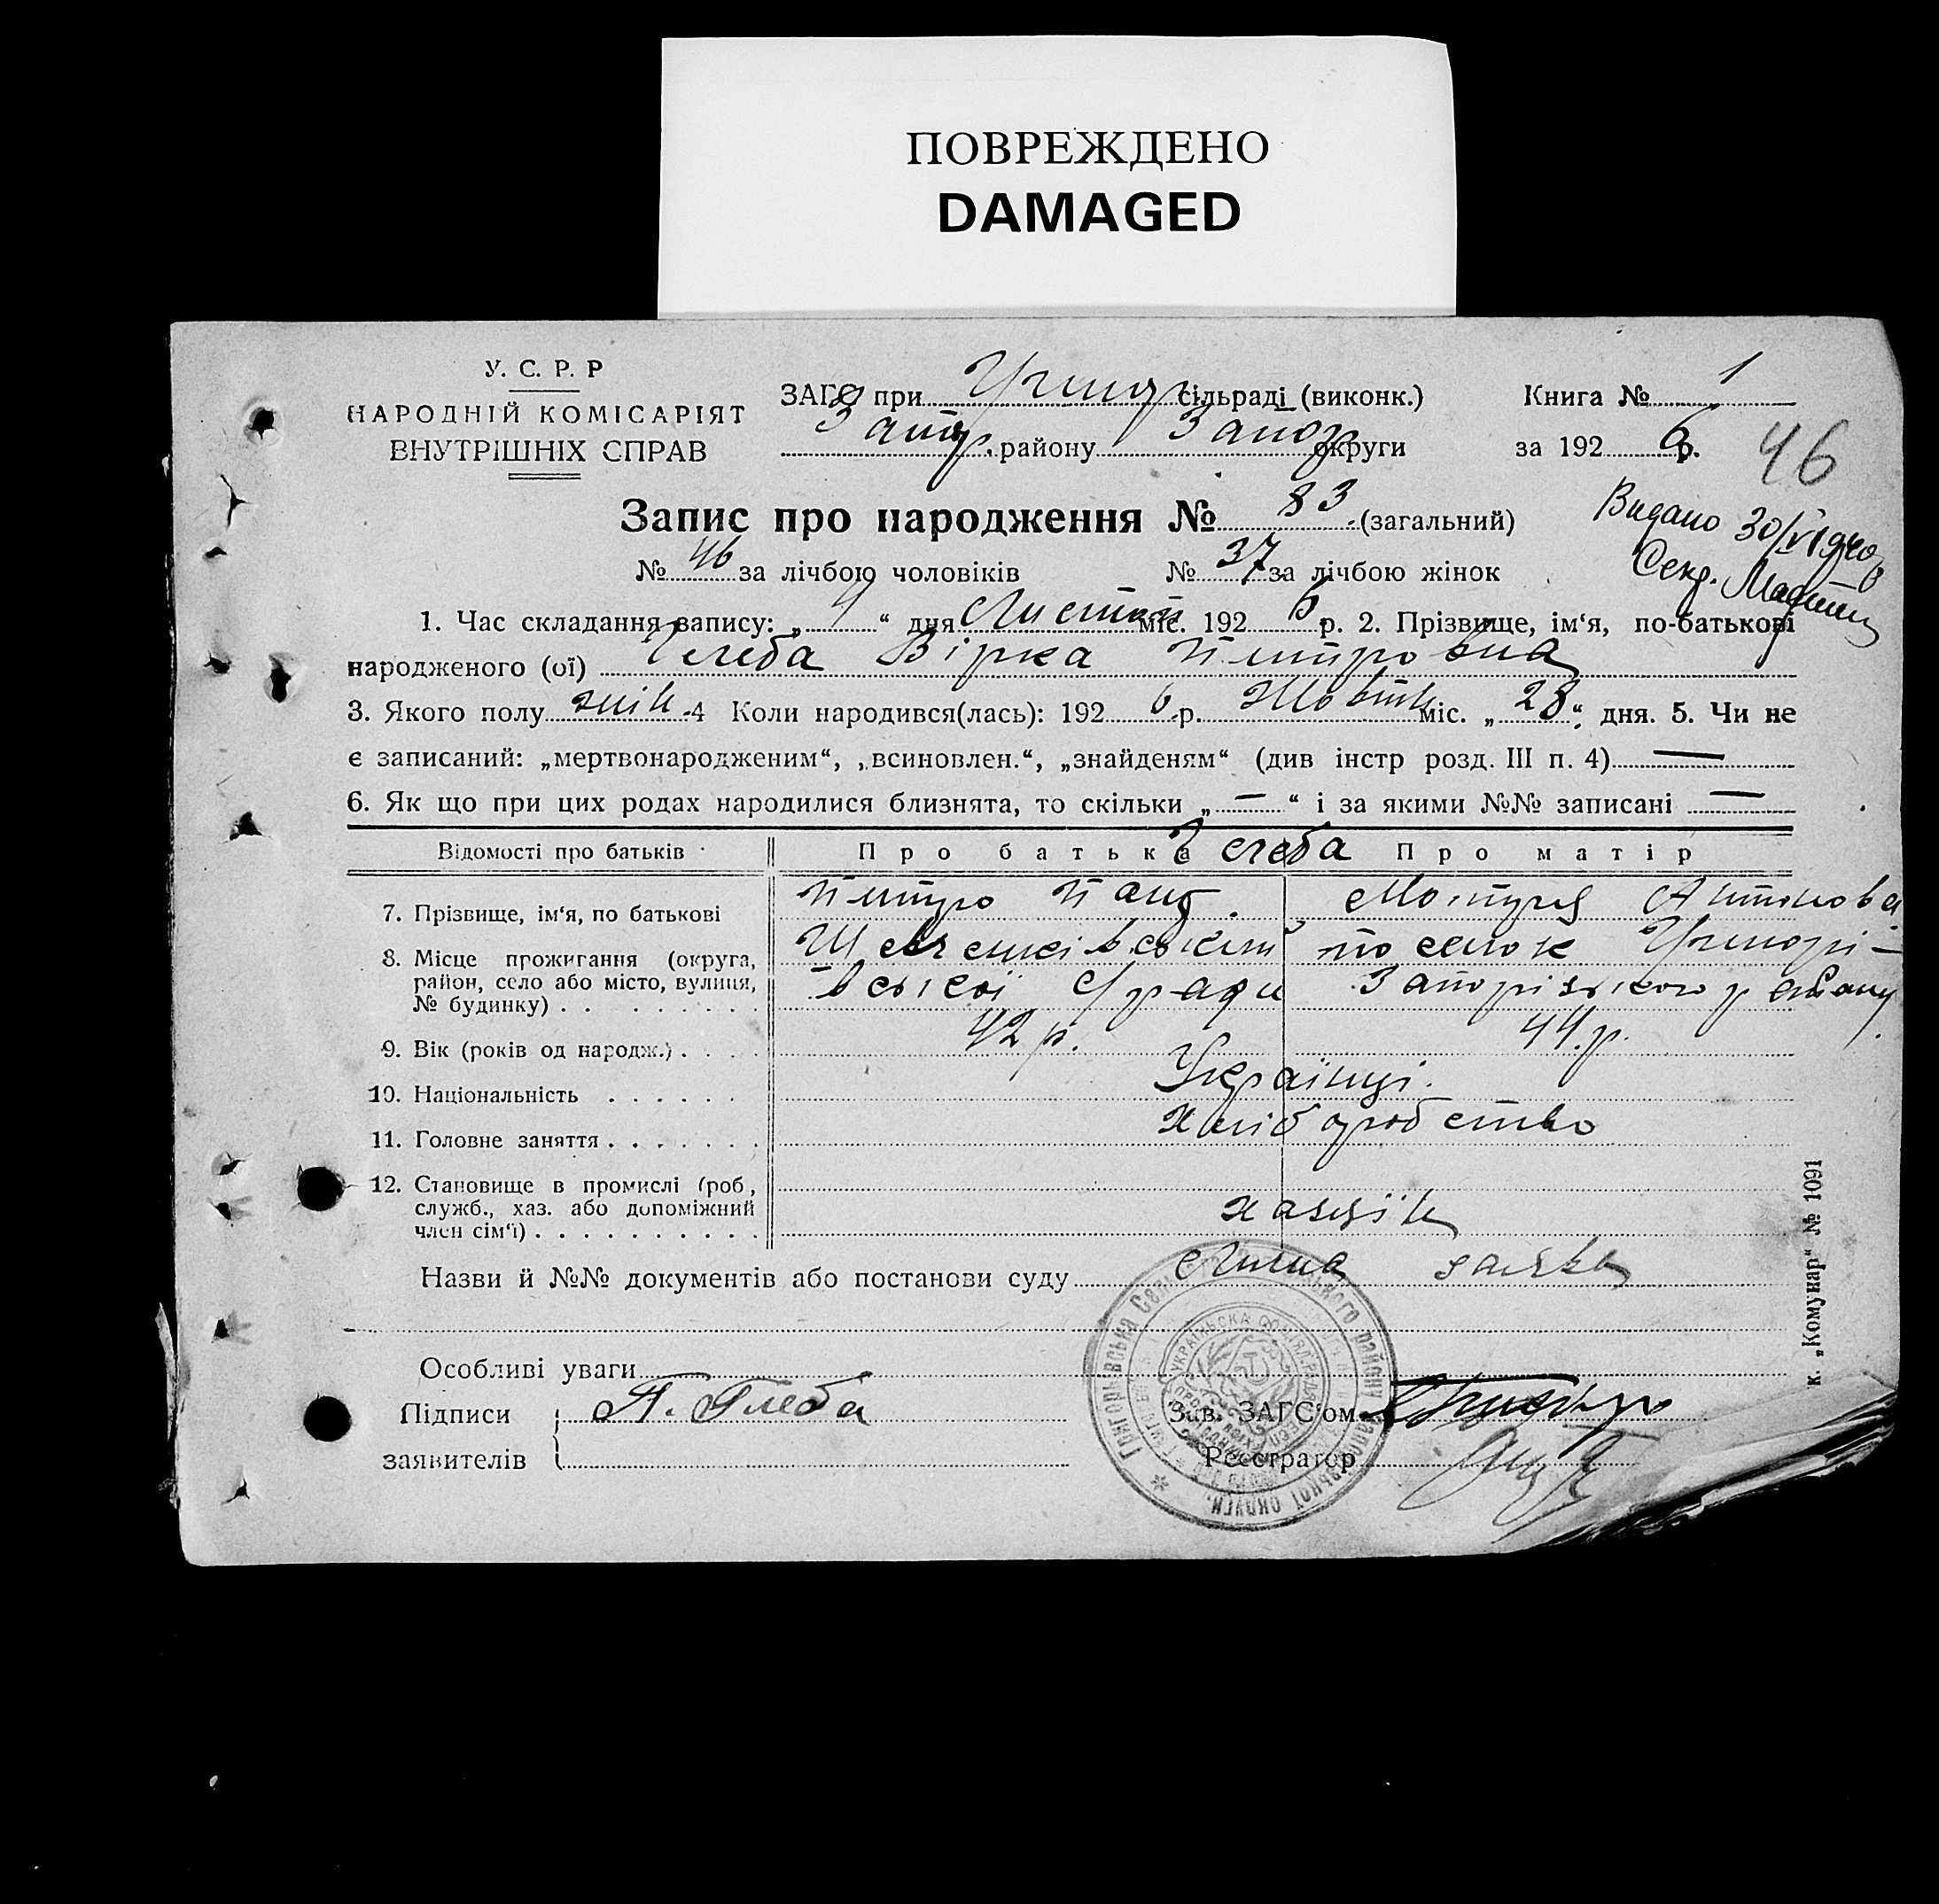 ПОВРЕЖДЕНО
DAMAGED
У. С. Р. Р
НАРОДНІЙ КОМІСАРІЯТ
ВНУТРІШНІХ СПРАВ
ЗАГС при сільраді (виконк.) Книга № 1
Запор. району Запор округи за 1926 р.
46
Запис про народження № 83 (загальний)
Видано 30/VI
Секр.
№ 46 за лічбою чоловіків № 37 за лічбою жінок
1. Час складання запису: „ “ дня міс. 1926 р. 2. Прізвище, ім‘я, по-батькові
народженого (ої) Глеба Вірка Петровна
3. Якого полу жін. 4 Коли народився(лась): 1926 р. Жовтн міс. „28“ дня. 5. Чи не
є записаний: „мертвонародженим“, „всиновлен.“, „знайденям“ (див інстр розд. III п. 4) —
6. Як що при цих родах народилися близнята, то скільки „—“ і за якими №№ записані —
Відомості про батьків Про батька Глеба Про матір
7. Прізвище, ім‘я, по батькові Петро Мотря Антонова
8. Місце прожигання (округа, район, село або місто, вулиця, № будинку) Шевченківський поселок
вської С/ради Запорізького району
9. Вік (років од народж.) 42 р. 44 р.
10. Національність Українці.
11. Головне заняття Хліборобство
12. Становище в промислі (роб, служб., хаз. або допоміжний член сім‘ї) хазяїн
Назви й №№ документів або постанови суду заява
Особливі уваги
Підписи заявителів П. Глеба
Зав. ЗАГС‘ом
Реєстратор
к. „Комунар“ № 1091